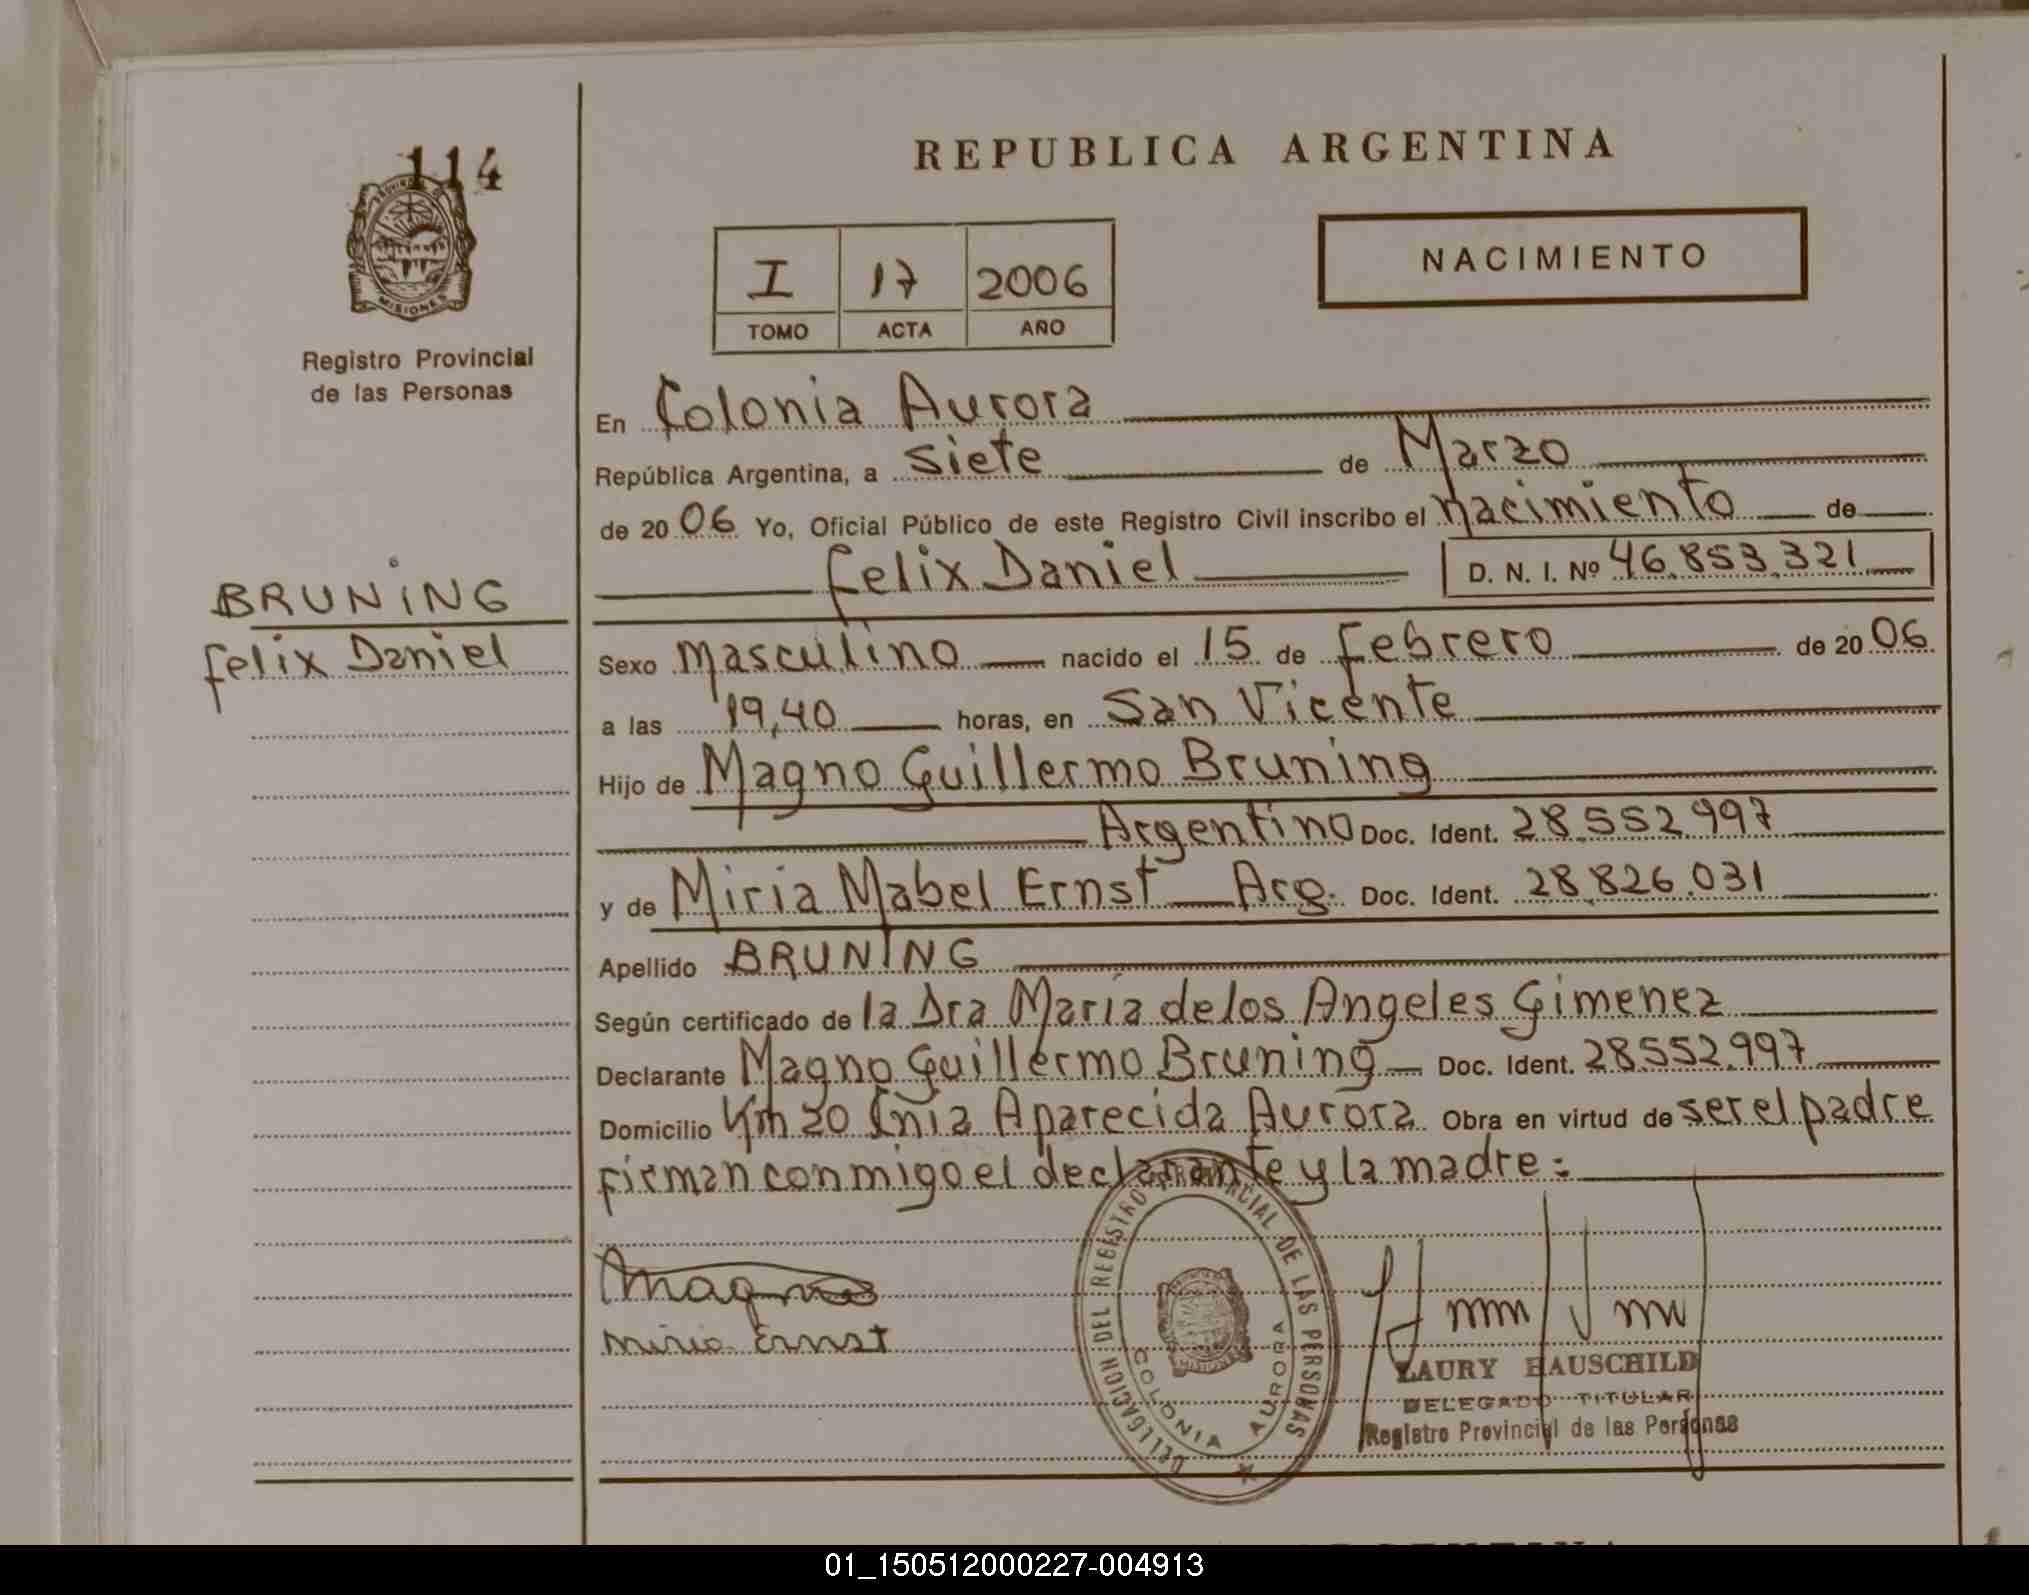 114
PROVINCIA DE
MISIONES
Registro Provincial
de las Personas
BRUNING
Felix Daniel
REPUBLICA ARGENTINA
I 17 2006
TOMO ACTA AÑO
NACIMIENTO
En Colonia Aurora
República Argentina, a siete de Marzo
de 2006 Yo, Oficial Público de este Registro Civil inscribo el nacimiento de
Felix Daniel D. N. I. Nº 46.853.321
Sexo Masculino nacido el 15 de Febrero de 2006
a las 19,40 horas, en San Vicente
Hijo de Magno Guillermo Bruning
Argentino Doc. Ident. 28.552.997
y de Miria Mabel Ernst Arg. Doc. Ident. 28.826.031
Apellido BRUNING
Según certificado de la Dra Maria de los Angeles Gimenez
Declarante Magno Guillermo Bruning Doc. Ident. 28.552.997
Domicilio Km 20 Cnia Aparecida Aurora Obra en virtud de ser el padre
firman conmigo el declarante y la madre:
Magno
Miria Ernst
DELEGACION DEL REGISTRO PROVINCIAL DE LAS PERSONAS
COLONIA AURORA
LAURY HAUSCHILD
DELEGADO TITULAR
Registro Provincial de las Personas
01_150512000227-004913